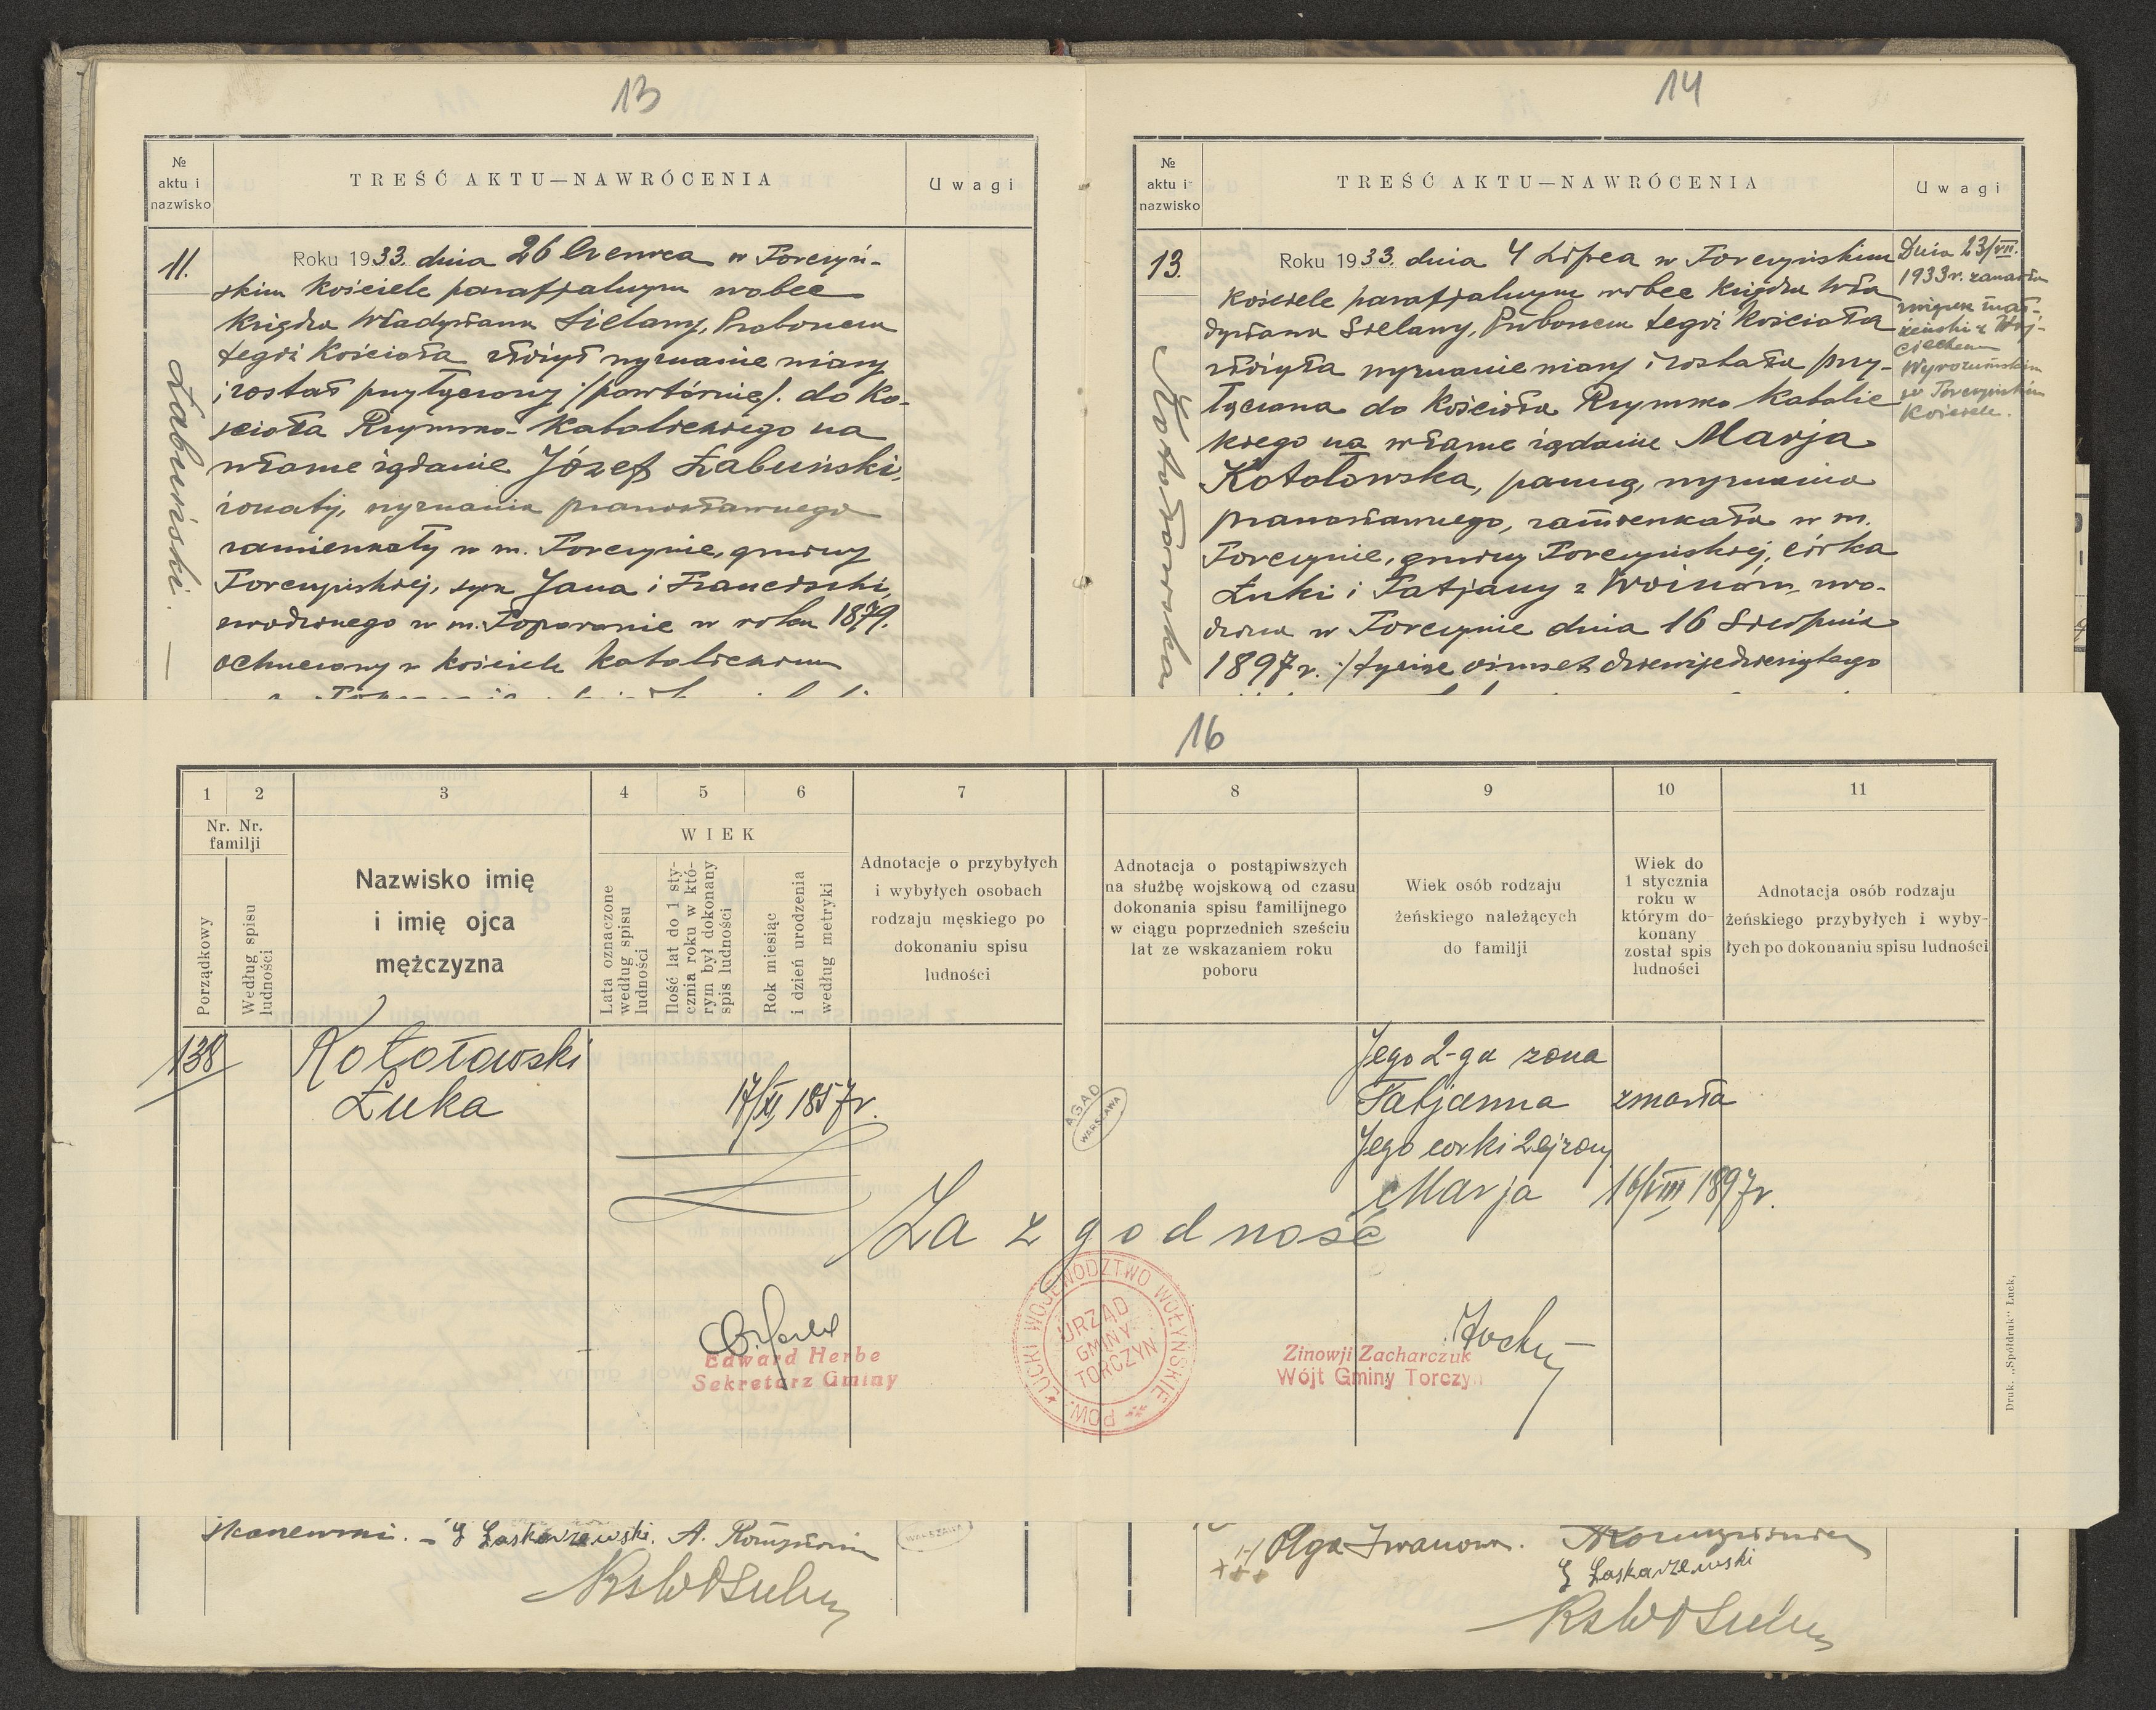 13
№
aktu i
nazwisko
TREŚĆ AKTU—NAWRÓCENIA
Uwagi
11.
Łabuński.
Roku 1933. dnia 26 Czerwca w Torczyń-
skim Kościele parafjalnym wobec
Księdza Władysława Sielawy, Proboszcza
tegoż Kościoła złożył wyznanie wiary
i został przyłączony /powtórnie/. do Ko-
ścioła Rzymsko-Katolickiego na
własne żądanie Józef Łabuński,
żonaty, wyznania prawosławnego
zamieszkały w m. Torczynie, gminy
Torczyńskiej, syn Jana i Franciszki,
urodzonego w m. Toporowie w roku 1879.
ochrzczony w kościele katolickim
14
№
aktu i
nazwisko
TREŚĆ AKTU—NAWRÓCENIA
Uwagi
13.
Kotołowska
Roku 1933. dnia 4 Lipca w Torczyńskim
Kościele parafjalnym wobec Księdza Wła
dysława Sielawy, Proboszcza tegoż Kościoła
złożyła wyznanie wiary i została przy-
łączona do Kościoła Rzymsko Katolic
kiego na własne żądanie Marja
Kotołowska, panna, wyznania
prawosławnego, zamieszkała w m.
Torczynie, gminy Torczyńskiej, córka
Łuki i Tatjany z Woinów, uro-
dzona w Torczynie dnia 16 Sierpnia
1897 r. /tysiąc ośmset dziewięćdziesiątego
Dnia 23/VII.
1933 r. zawarła
związek mał-
żeński z Woj-
ciechem
Wyrozumskim
w Torczyńskim
Kościele.
16
1
2
3
4
5
6
7
8
9
10
11
Nr. Nr.
familji
Porządkowy
Według spisu
ludności
Nazwisko imię
i imię ojca
mężczyzna
WIEK
Lata oznaczone
według spisu
ludności
Ilość lat do 1 sty-
cznia roku w któ-
rym był dokonany
spis ludności
Rok miesiąc
i dzień urodzenia
według metryki
Adnotacje o przybyłych
i wybyłych osobach
rodzaju męskiego po
dokonaniu spisu
ludności
Adnotacja o postąpiwszych
na służbę wojskową od czasu
dokonania spisu familijnego
w ciągu poprzednich sześciu
lat ze wskazaniem roku
poboru
Wiek osób rodzaju
żeńskiego należących
do familji
Wiek do
1 stycznia
roku w
którym do-
konany
został spis
ludności
Adnotacja osób rodzaju
żeńskiego przybyłych i wyby-
łych po dokonaniu spisu ludności
138
Kotołowski
Łuka
17/XI 1857 r.
Jego 2-ga żona
Tatjanna zmarła
Jego corki 2ej żony
Marja 16/VIII 1897 r.
Za zgodność
A.G.A.D
WARSZAWA
Edward Herbe
Sekretarz Gminy
ŁUCKI WOJEWÓDZTWO WOŁYŃSKIE POW.
URZĄD
GMINY
TORCZYN
Zinowji Zacharczuk
Wójt Gminy Torczyn
Druk. „Spółdruk" Łuck,
Ł Łaskarzewski. A.
WARSZAWA
+++ Olga Iwanowa.
Ł Łaskarzewski